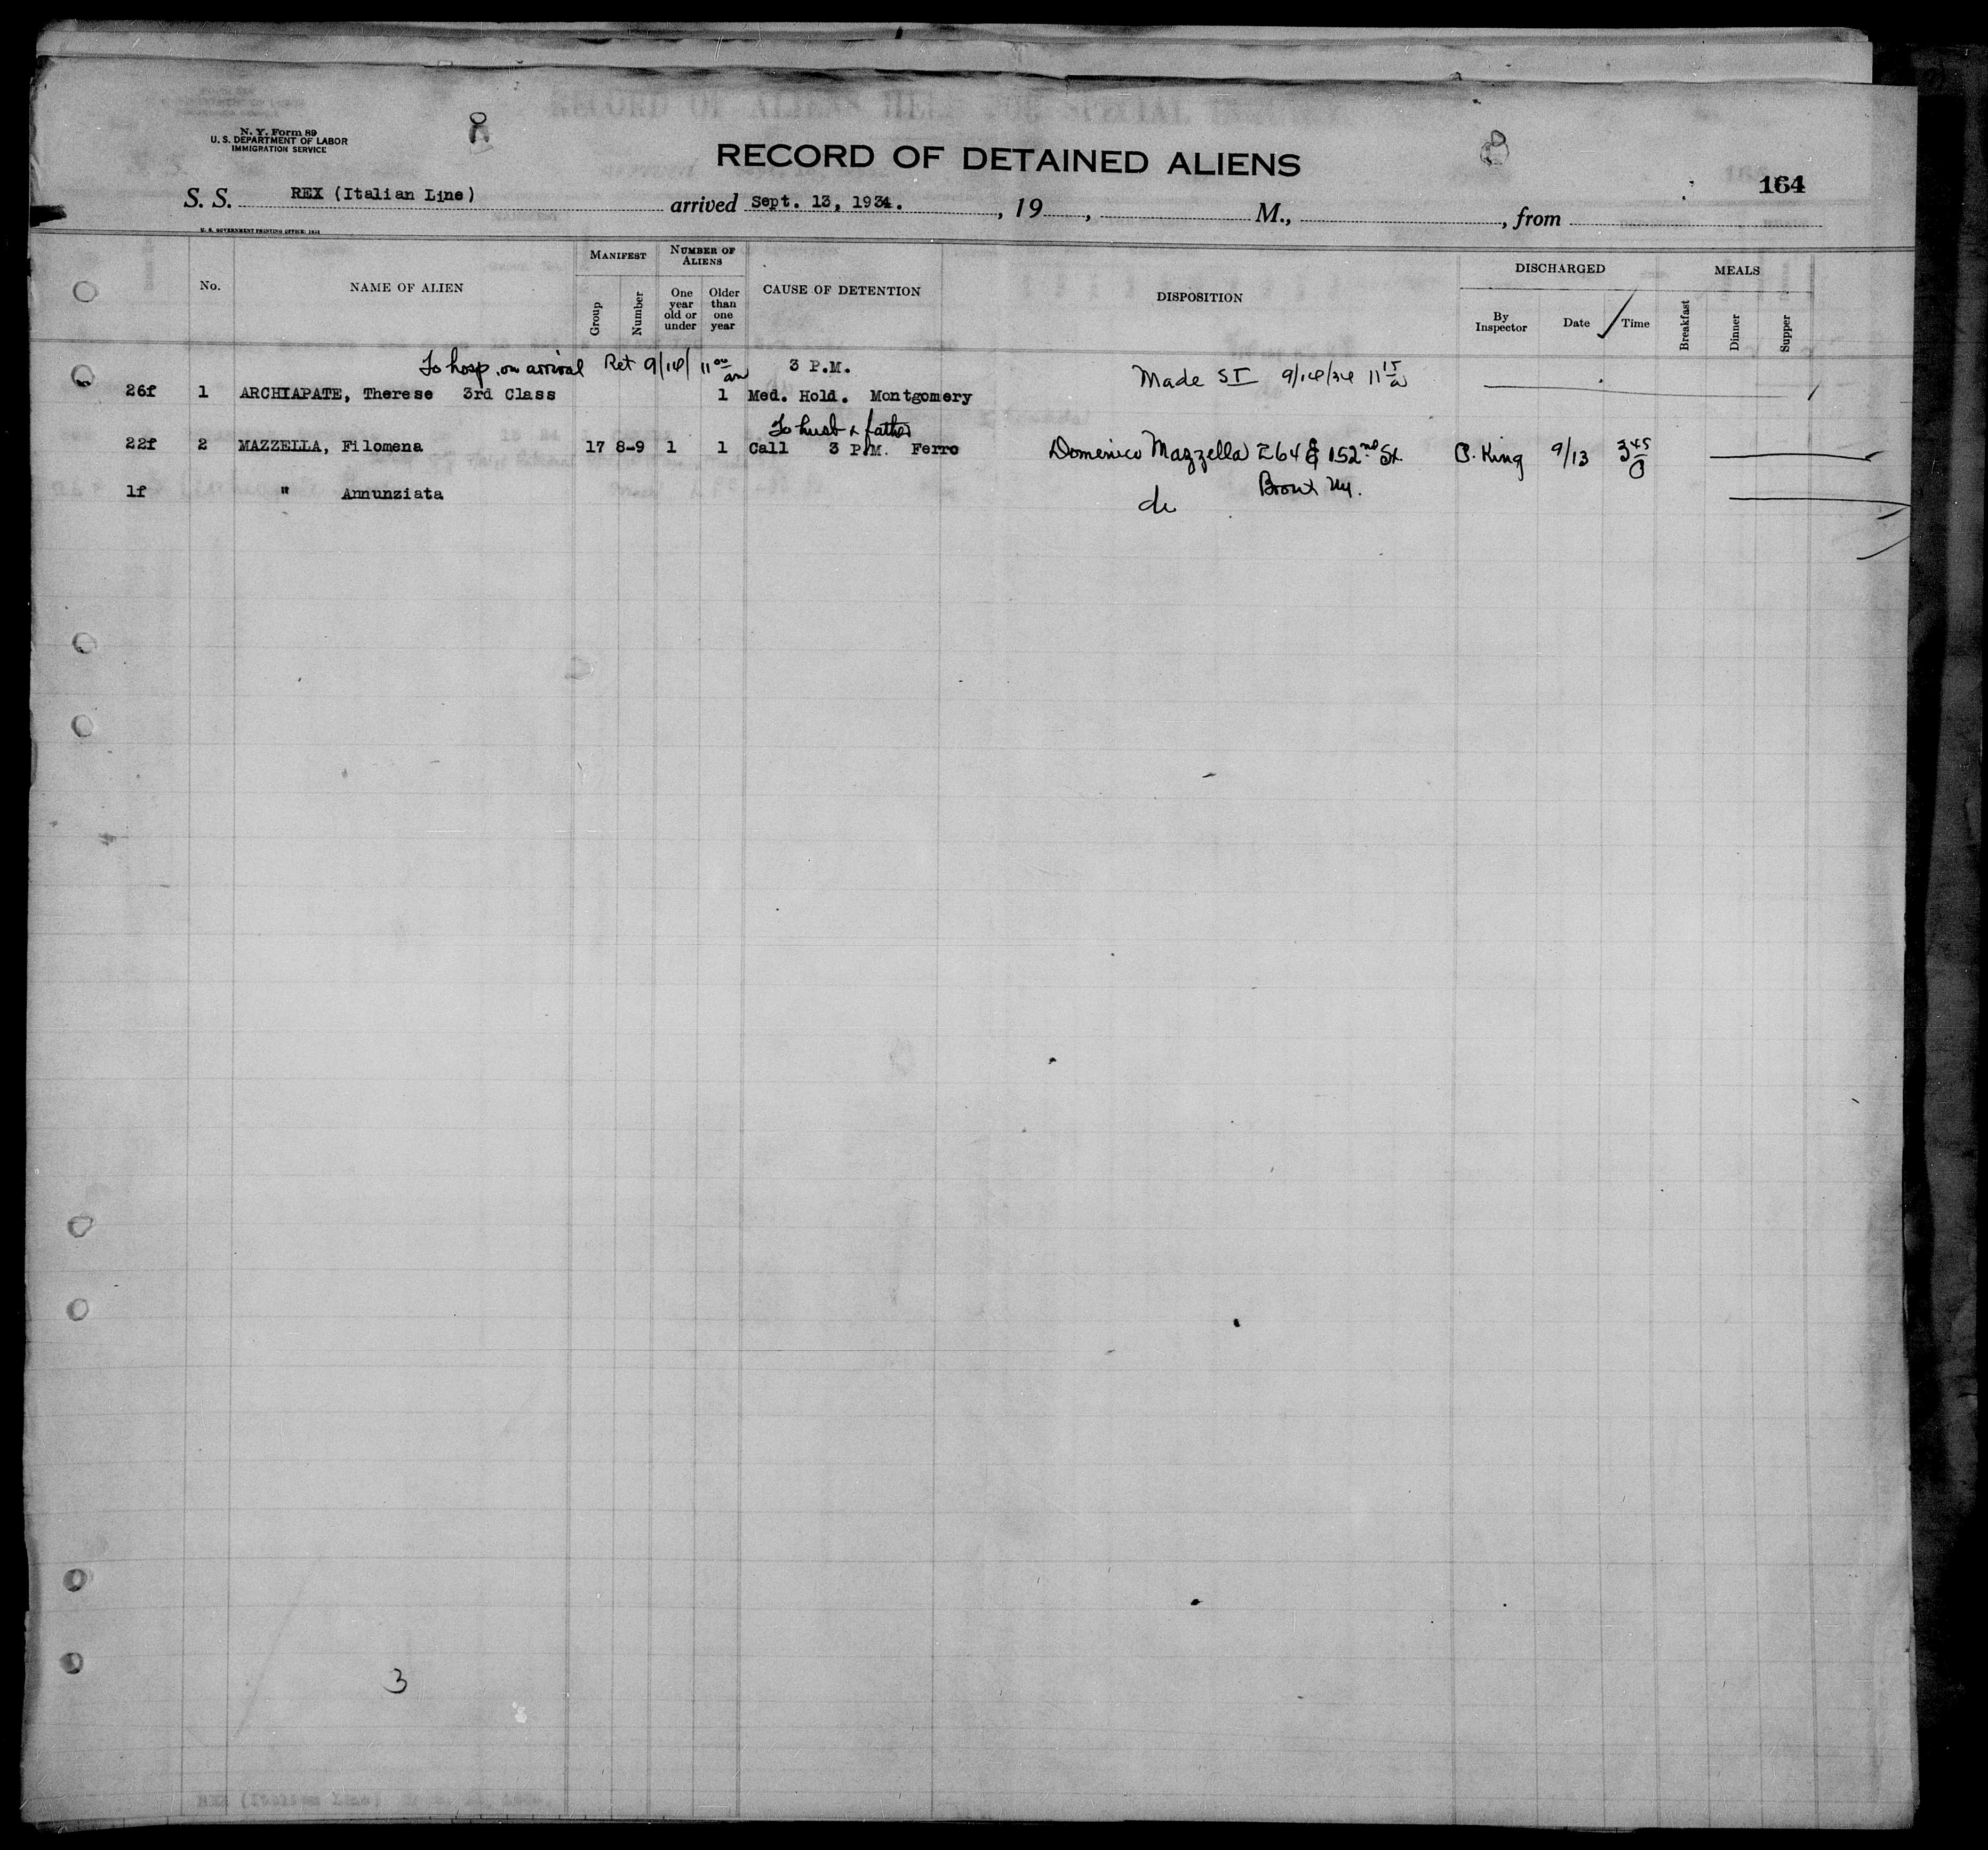 N. Y. Form 89
U. S. DEPARTMENT OF LABOR
IMMIGRATION SERVICE
RECORD OF DETAINED ALIENS
164
S. S. REX (Italian Line) arrived Sept. 13, 1934. , 19 , M., , from
U. S. GOVERNMENT PRINTING OFFICE: 1934
No. NAME OF ALIEN MANIFEST Group Number NUMBER OF ALIENS One year old or under Older than one year CAUSE OF DETENTION DISPOSITION DISCHARGED By Inspector Date Time MEALS Breakfast Dinner Supper
To hosp. on arrival Ret 9/14/ 11 00 am 3 P.M. Made SI 9/14/34 11 15 a
26f 1 ARCHIAPATE, Therese 3rd Class 1 Med. Hold. Montgomery
To husb & father
22f 2 MAZZELLA, Filomena 17 8-9 1 1 Call 3 P.M. Ferro Domenico Mazzella 264 E 152nd St. King 9/13 3 45
1f " Annunziata Bronx NY.
do
3